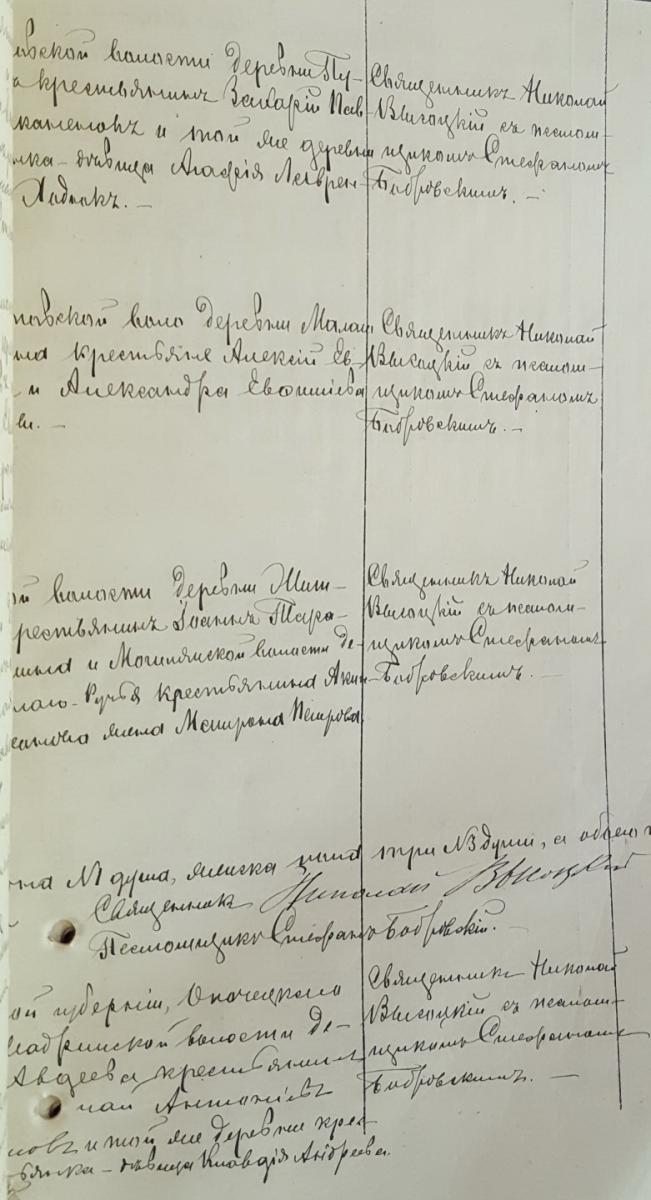 ивской волости деревни Пу-
а крестьянинъ Захарій Пав-
и той же деревни
нка - дѣвица Агафія Лаврен-
Священникъ Николай
Высоцкій съ псалом-
щикомъ Стефаномъ
Бобровскимъ. —
новской воло деревни Малаш
на крестьяне Алексій Ев-
и Александра Евѳиміева
ви. —
Священникъ Николай
Высоцкій съ псалом-
щикомъ Стефаномъ
Бобровскимъ. —
ой волости деревни Жит-
рестьянинъ Іоаннъ Тара-
и волости де-
лаго-Ручья крестьянина Акин-
жена Матрона Петрова.
Священникъ Николай
Высоцкій съ псалом-
щикомъ Стефаномъ
Бобровскимъ. —
на №1 душа, женска пола три №3 души, а обоего
Священникъ Николай Высоцкій
Псаломщикъ Стефанъ Бобровскій. —
ой губерніи, Опочецкаго
волости де-
Авдеева крестьянинъ
лай Антоніевъ
новъ и той же деревни крес-
тьянка - дѣвица Клавдія Андреева.
Священникъ Николай
Высоцкій съ псалом-
щикомъ Стефаномъ
Бобровскимъ. —